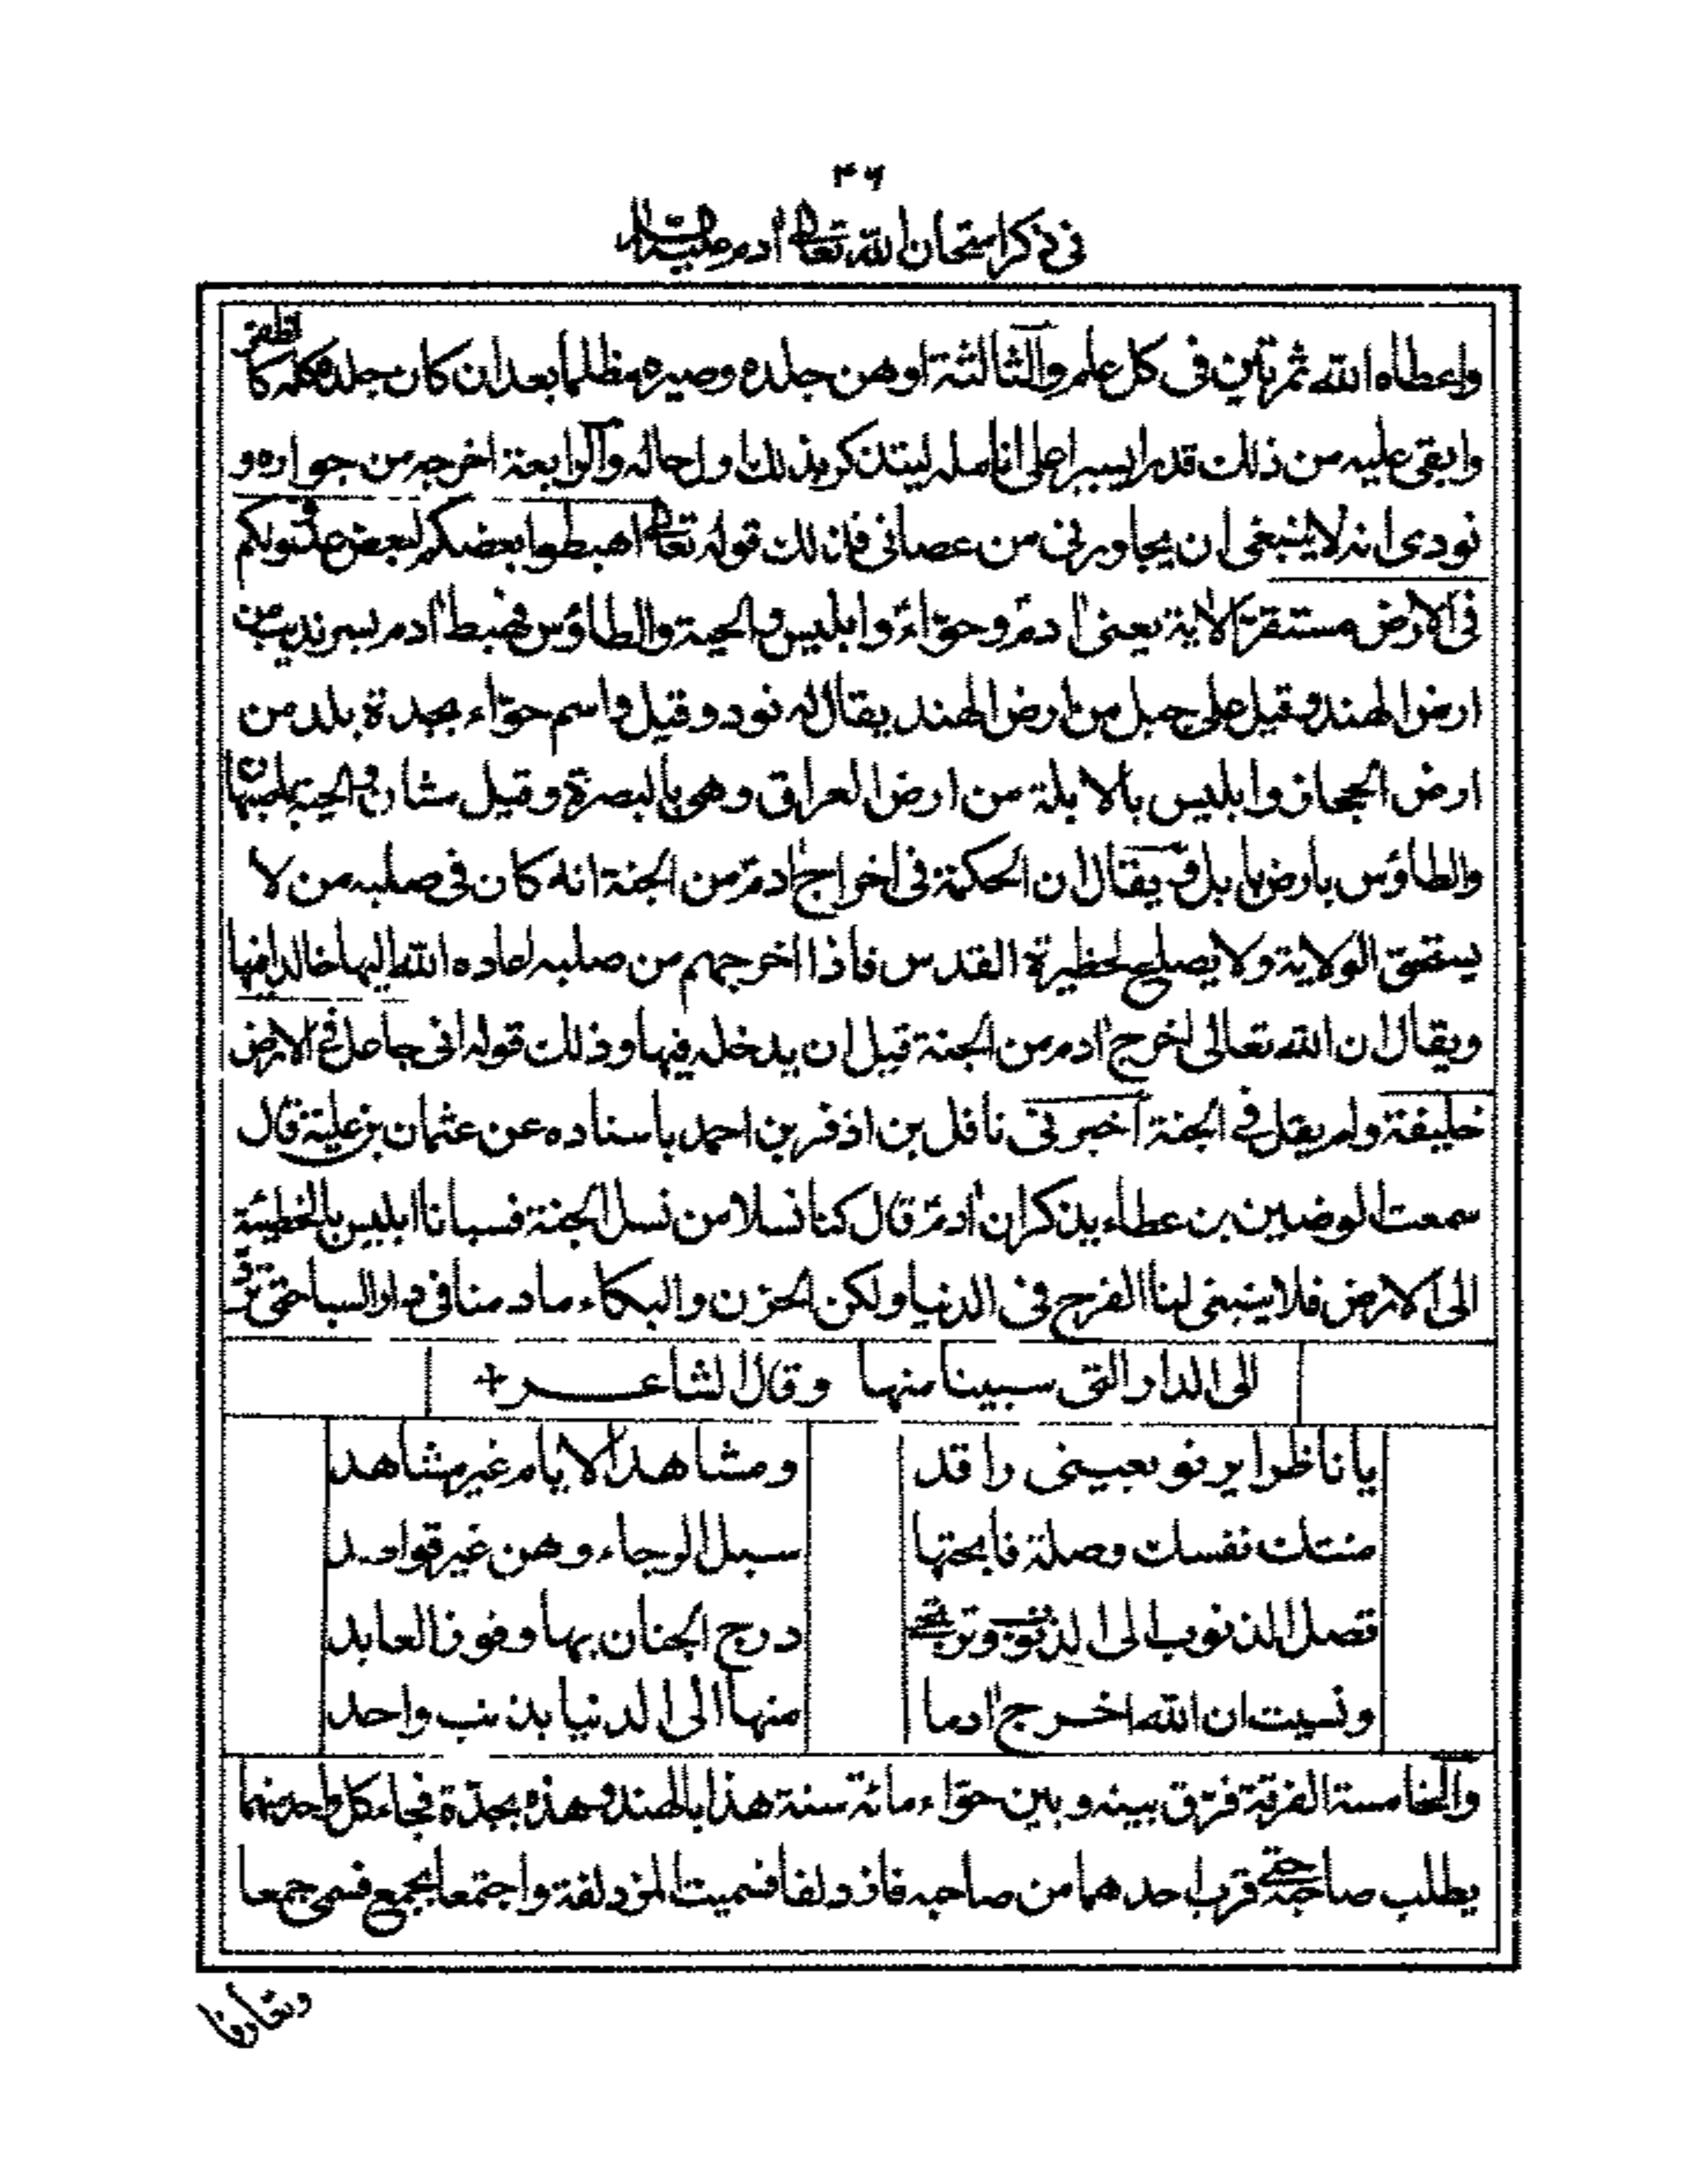 ٤٦
فى ذكر امتحان الله تعالى ادم عليه السلام
واعطاه الله ثم تاين فى كل علم والثالثة اوهن جلده وصيره مظلما بعد ان كان جلده كله كالظفر
وابقى عليه من ذلك قدرا يسيرا على انامله ليتذكر بذلك اول حاله والرابعة اخرجه من جواره و
نودى انه لا ينبغى ان يجاورنى من عصانى فذلك قوله تعالى اهبطوا بعضكم لبعض عدو ولكم
فى الارض مستقر الاية يعنى ادم وحوّاء وابليس والحية والطاؤس فهبط ادم بسرنديب من
ارض الهند وقيل على جبل من ارض الهند يقال له نود وقيل واسم حوّاء بجدة بلد من
ارض الحجاز وابليس بالابلة من ارض العراق وهى بالبصرة وقيل مشان والحية باصبهان
والطاؤس بارض بابل ويقال ان الحكمة فى اخراج ادم من الجنة انه كان فى صلبه من لا
يستحق الولاية ولا يصلح لحظيرة القدس فاذا اخرجهم من صلبه اعاده الله اليها خالدا فيها
ويقال ان الله تعالى اخرج ادم من الجنة قبل ان يدخله فيها وذلك قوله انى جاعل فى الارض
خليفة ولم يقل فى الجنة اخبرنى نافل بن اذفر بن احمد باسناده عن عثمان بن علية قال
سمعت الوضين بن عطاء يذكر ان ادم قال كنا نسلا من نسل الجنة فسبانا ابليس بالخطيئة
الى الارض فلا ينبغى لنا الفرح فى الدنيا ولكن الحزن والبكاء ما دمنا فى دار السبا حتى نرد
الى الدار التى سبينا منها وقال الشاعر +
يا ناظرا يرنو بعينى راقد ومشاهد الايام غير مشاهد
منتك نفسك وصلة فابحتها سبل الرجاء وهن غير قواصد
تصل الذنوب الى الذنوب وترتجى درج الجنان بها وفوز العابد
ونسيت ان الله اخرج ادما منها الى الدنيا بذنب واحد
والخامسة الفرقة فرّق بينه وبين حوّاء مائة سنة هذا بالهند وهذه بجدّة فجاء كل واحد منهما
يطلب صاحبه حتى قرب احدهما من صاحبه فازدلفا فسميت المزدلفة واجتمعا بجمع فسمى جمعا
وتعارفا